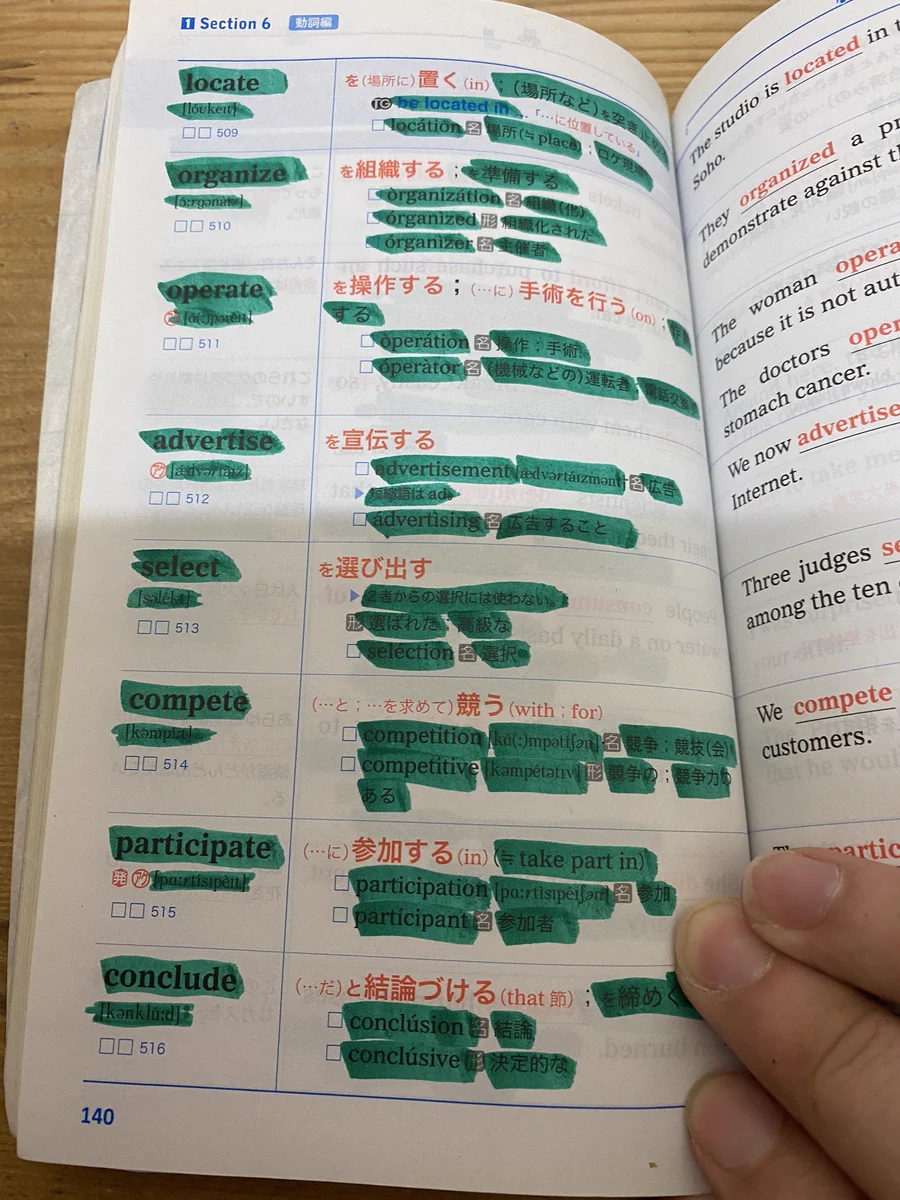 1 Section 6 動詞編
locate
を(場所に)置く(in);(場所など)を突き止める
TG be located in ...「…に位置している」
[lóukeɪt]
□□ 509
□ locátion 名 場所(≒ place);
organize
を組織する;を準備する
□ òrganizátion 名 組織(化)
□□ 510
□ órganized 形 組織化された
□ órganizer 名 主催者
operate
を操作する;(…に)手術を行う(on);
する
□□ 511
□ òperátion 名 操作;手術
□ óperàtor 名 (機械などの)運転者;
advertise
を宣伝する
ア [ǽdvərtàɪz]
□ advertisement [ædvərtáɪzmənt] 名 広告
□□ 512
▶ 短縮語は ad。
□ ádvertising 名 広告すること
select
を選び出す
[səlékt]
▶ 2者からの選択には使わない。
□□ 513
形 選ばれた;高級な
□ seléction 名 選択
compete
(…と;…を求めて)競う(with ; for)
[kəmpíːt]
□ competition [kɑ(ː)mpətíʃən] 名 競争;競技(会)
□□ 514
□ competitive [kəmpétətɪv] 形 競争の;競争力の
ある
participate
(…に)参加する(in)(≒ take part in)
発 ア [pɑːrtísɪpèɪt]
□ participation [pɑːrtìsɪpéɪʃən] 名 参加
□□ 515
□ partícipant 名 参加者
conclude
(…だ)と結論づける(that 節);を締めく
[kənklúːd]
□ conclúsion 名 結論
□□ 516
□ conclúsive 形 決定的な
140
The studio is located in
Soho.
They organized a
demonstrate against
The woman
because it is not
The doctors
stomach cancer.
We now advertise
Internet.
Three judges
among the ten
We compete
customers.